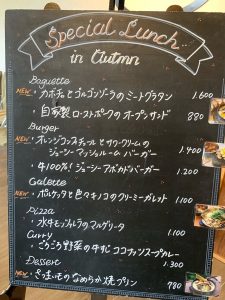 Special Lunch
in Autmn
Baguette
NEW・カボチャとゴルゴンゾーラのミートグラタン 1.600
・自家製ローストポークのオープンサンド 880
Burger
NEW・オレンジコンフィチュールとサワークリームの
ジューシーマッシュルームバーガー 1.400
・牛100%!ジューシーアボカドバーガー 1.200
Galette
NEW・ポルケッタと色マキノコのクリーミーガレット 1.100
Pizza
・水牛モッツァレラのマルゲリータ 1.100
Curry
・ごろごろ野菜の牛すじココナッツスープカレー
1.300
Dessert
NEW・さつまいものなめらか焼プリン 780